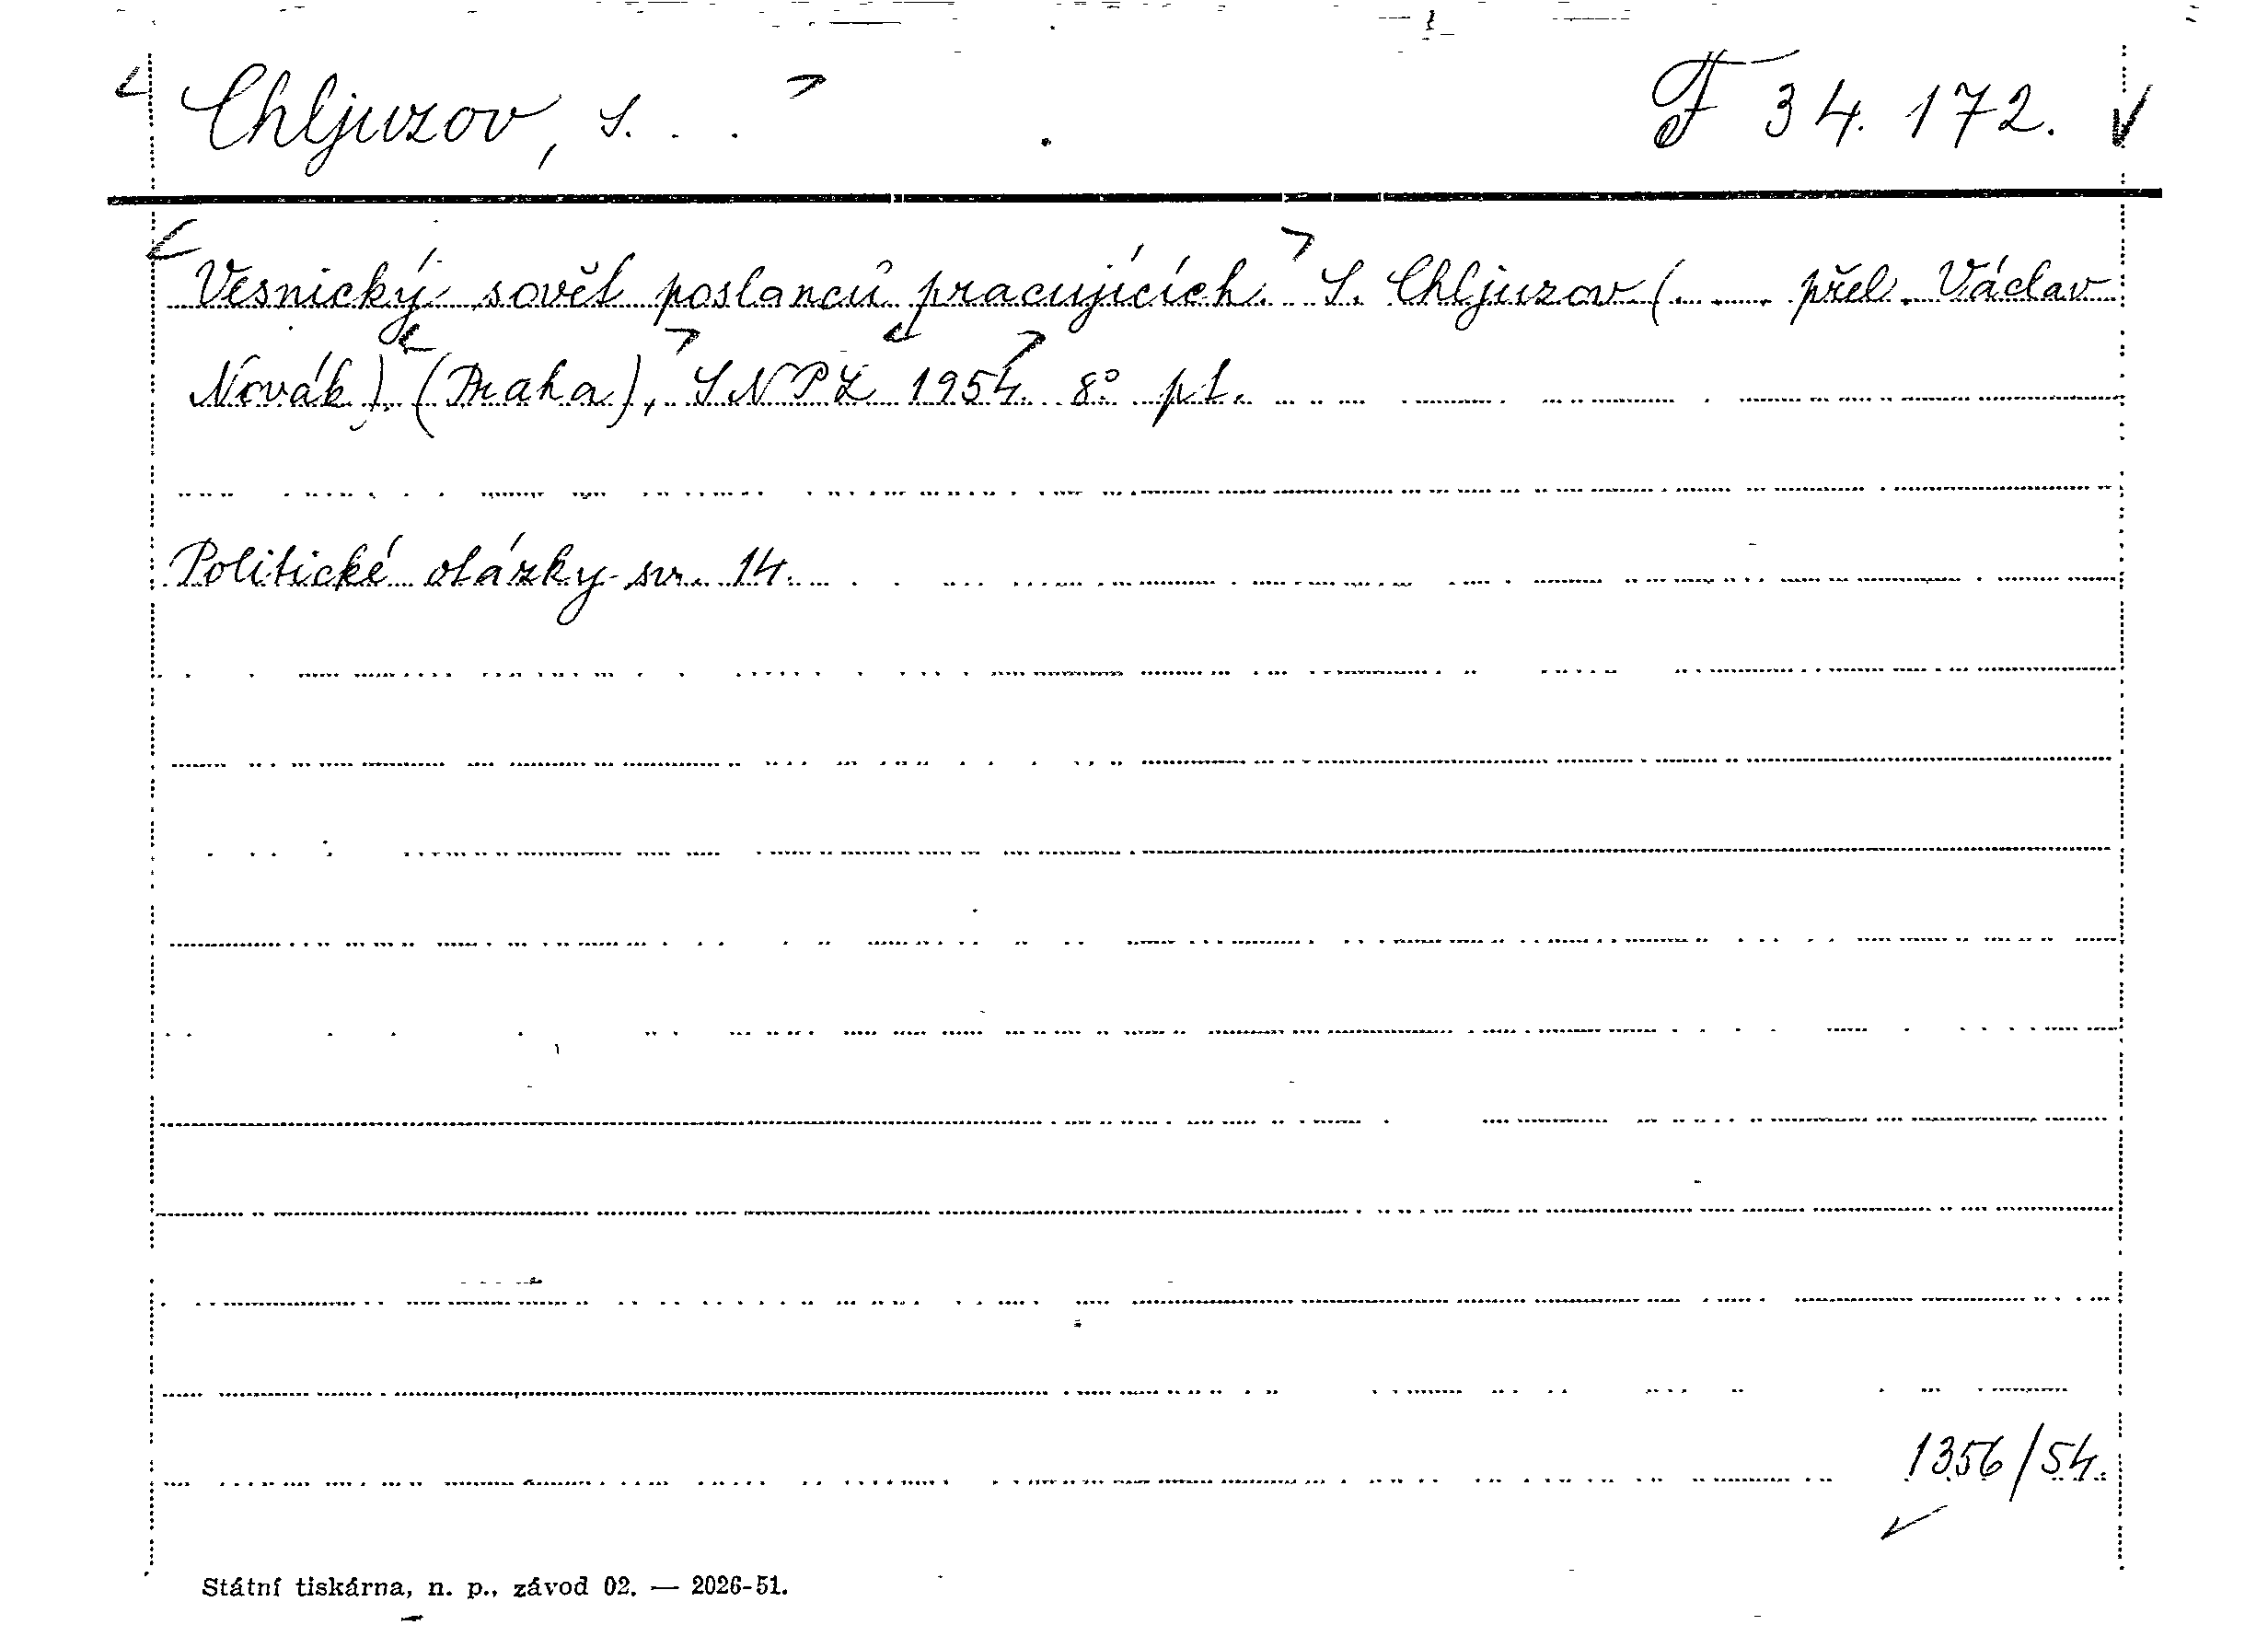 Chljuzov, S. . . F 34.172.
Vesnický sovět poslanců pracujících. S. Chljuzov (. ... přel. Václav
Novák). (Praha), SNPL 1954. 8° pl.
Politické otázky sv. 14.
1356/54.
Státní tiskárna, n. p., závod 02. — 2026-51.